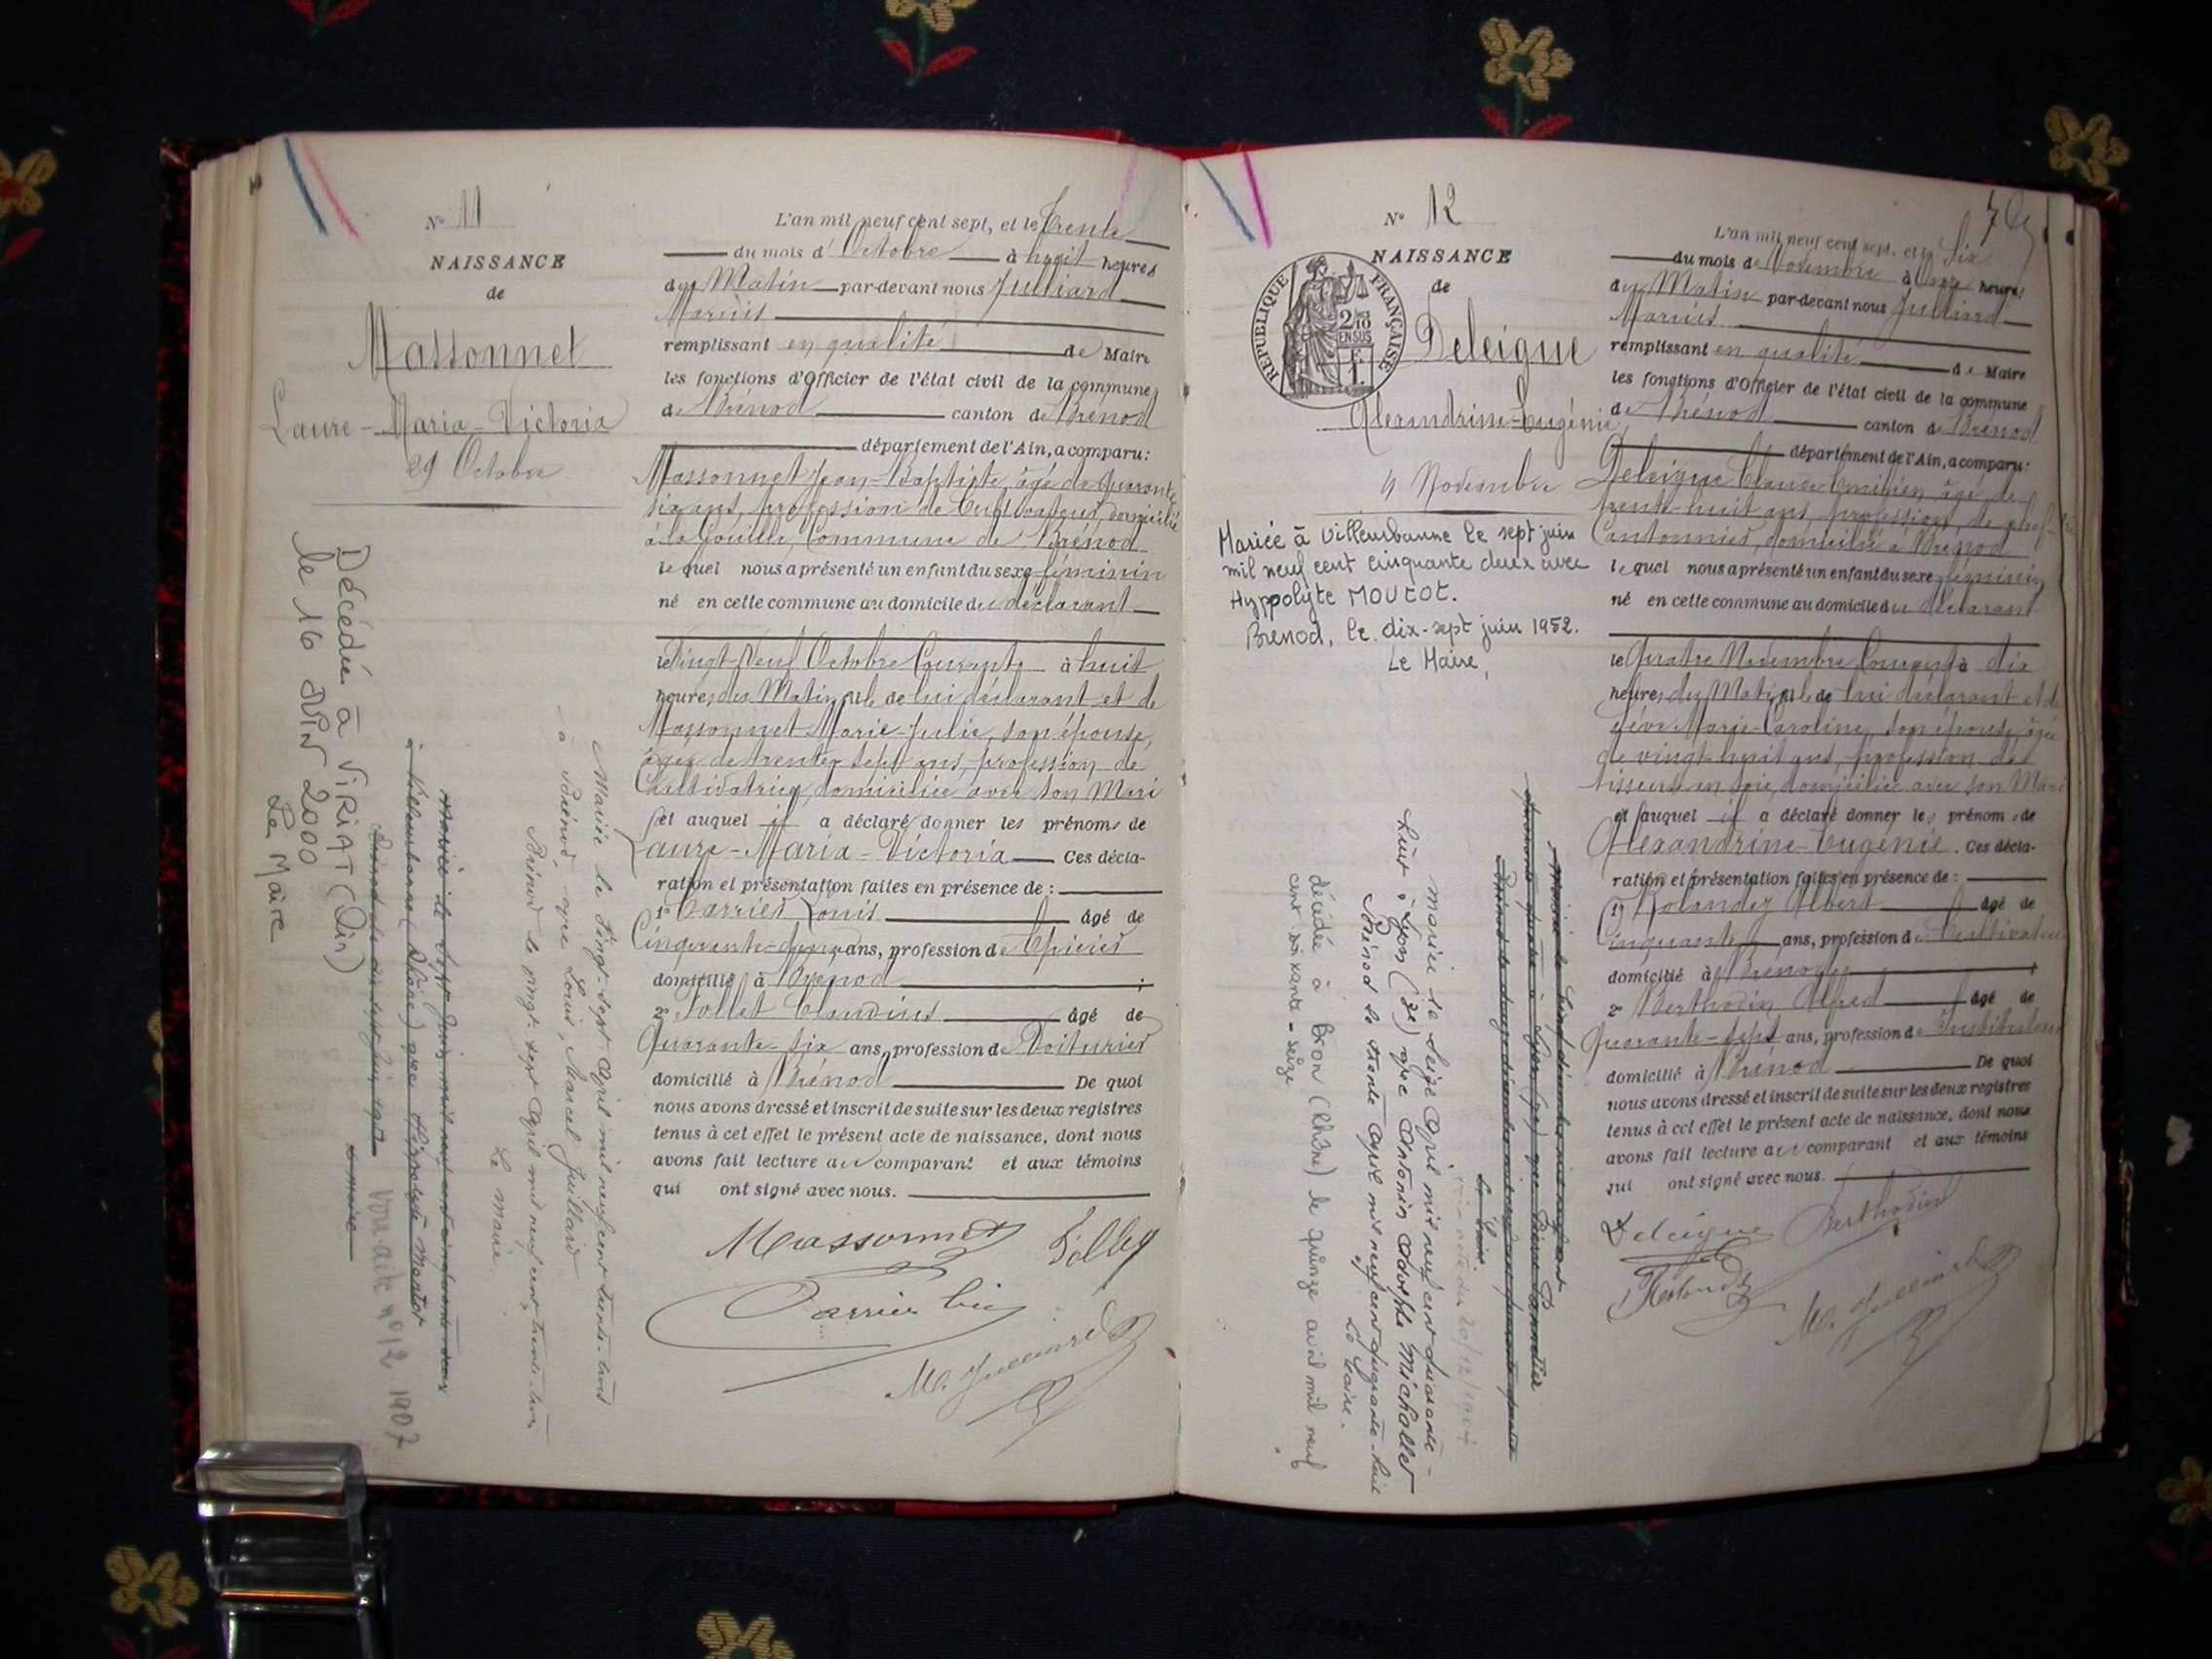 N° 11
NAISSANCE
de
Massonnet
Laure-Maria-Victoria
29 Octobre
Décédée à VIRIAT (Ain)
le 16 JUIN 2000
Le Maire
Voir acte n° 12 1907
Mariée le vingt-sept Avril mil neuf cent trente-trois
à Brénod, avec Louis, Marcel Juillard
Brénod le vingt-sept Avril mil neuf cent trente-trois
Le Maire.
L'an mil neuf cent sept, et le trente
du mois d'Octobre à huit heures
du Matin par-devant nous Julliard
Marius
remplissant en qualité de Maire
les fonctions d'Officier de l'état civil de la commune
de Brénod canton de Brénod
département de l'Ain, a comparu:
Massonnet Jean-Baptiste, âgé de quarante
six ans, profession de Cultivateur, domicilié
à la Gouille, Commune de Brénod
lequel nous a présenté un enfant du sexe féminin
né en cette commune au domicile du déclarant
le Vingt-Neuf Octobre Courant à huit
heures du Matin, de lui déclarant et de
Massonnet Marie-Julie, son épouse,
âgée de trente sept ans, profession de
Cultivatrice, domiciliée avec son Mari
et auquel il a déclaré donner les prénoms de
Laure-Maria-Victoria Ces décla-
ration et présentation faites en présence de :
1° Carrier Louis âgé de
Cinquante- ans, profession d'Epicier
domicilié à Brénod ;
2° Jollet Claudius âgé de
Quarante-six ans, profession de Voiturier
domicilié à Brénod De quoi
nous avons dressé et inscrit de suite sur les deux registres
tenus à cet effet le présent acte de naissance, dont nous
avons fait lecture au comparant et aux témoins
qui ont signé avec nous.
Massonnet
M. Julliard
N° 12
NAISSANCE
de
REPUBLIQUE FRANÇAISE
2/10
EN SUS
Deleigue
Alexandrine-Eugénie
4 Novembre
Mariée à Villeurbanne le sept juin
mil neuf cent cinquante deux avec
Hyppolyte MOUTOT.
Brénod, le dix-sept juin 1952.
Le Maire,
mariée le seize Avril mil neuf cent quarante-
huit à Lyon (3e) avec Antonin Adolphe Michallet
Brénod le trente Avril mil neuf cent quarante-huit
Le Maire.
décédée à Bron (Rhône) le quinze avril mil neuf
cent soixante-seize
L'an mil neuf cent sept, et le six
du mois de Novembre à onze heures
du Matin par-devant nous Julliard
Marius
remplissant en qualité de Maire
les fonctions d'Officier de l'état civil de la commune
de Brénod canton de Brénod
département de l'Ain, a comparu:
Deleigue Claude Emilien, âgé de
trente-huit ans, profession de chef-
Cantonnier, domicilié à Brénod
lequel nous a présenté un enfant du sexe féminin
né en cette commune au domicile du déclarant
le Quatre Novembre Courant à dix
heures du Matin, de lui déclarant et de
Marie-Caroline, son épouse, âgée
de vingt-huit ans, profession de
tisseuse en soie, domiciliée avec son Mari
et auquel il a déclaré donner les prénoms de
Alexandrine-Eugénie. Ces décla-
ration et présentation faites en présence de :
1° Rolandez Albert âgé de
Cinquante ans, profession de Cultivateur
domicilié à Brénod
2° Berthodin Alfred âgé de
Quarante-sept ans, profession d'Instituteur
domicilié à Brénod De quoi
nous avons dressé et inscrit de suite sur les deux registres
tenus à cet effet le présent acte de naissance, dont nous
avons fait lecture au comparant et aux témoins
qui ont signé avec nous.
Deleigue Berthodin
M. Julliard